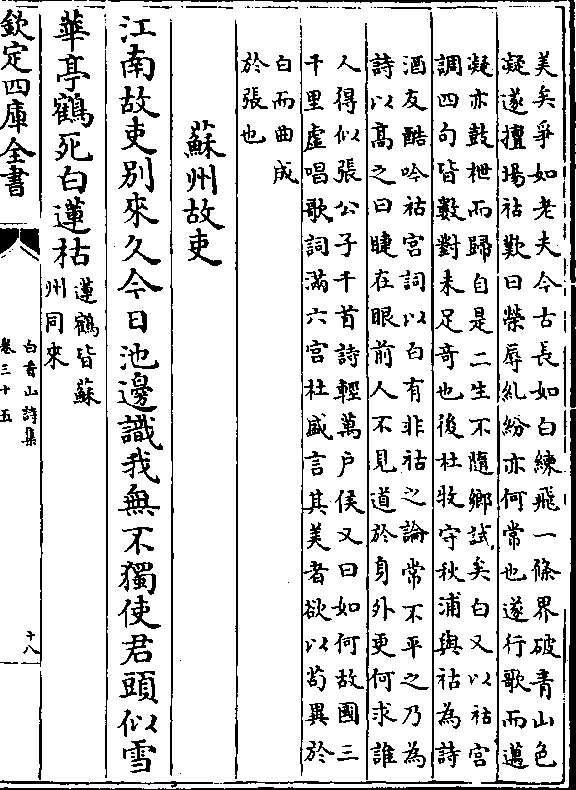 美矣爭如老夫今古長如白練飛一條界破青山色
凝遂擅塲祜歎曰榮辱糺紛亦何常也遂行歌而邁
凝亦鼓枻而歸自是二生不隨鄉試矣白又以祜宮
調四句皆數對未足竒也後杜牧守秋浦與祜為詩
酒友酷吟祜宮詞以白有非祜之論常不平之乃為
詩以高之曰睫在眼前人不見道於身外更何求誰
人得似張公子千首詩輕萬户侯又曰如何故國三
千里虚唱歌詞滿六宮杜盛言其美者欲以茍異於
白而曲成
於張也
蘇州故吏
江南故吏别來久今日池邊識我無不獨使君頭似雪
華亭鶴死白蓮枯
蓮鶴皆蘇
州同來
欽定四庫全書
白香山詩集
卷三十五
十八